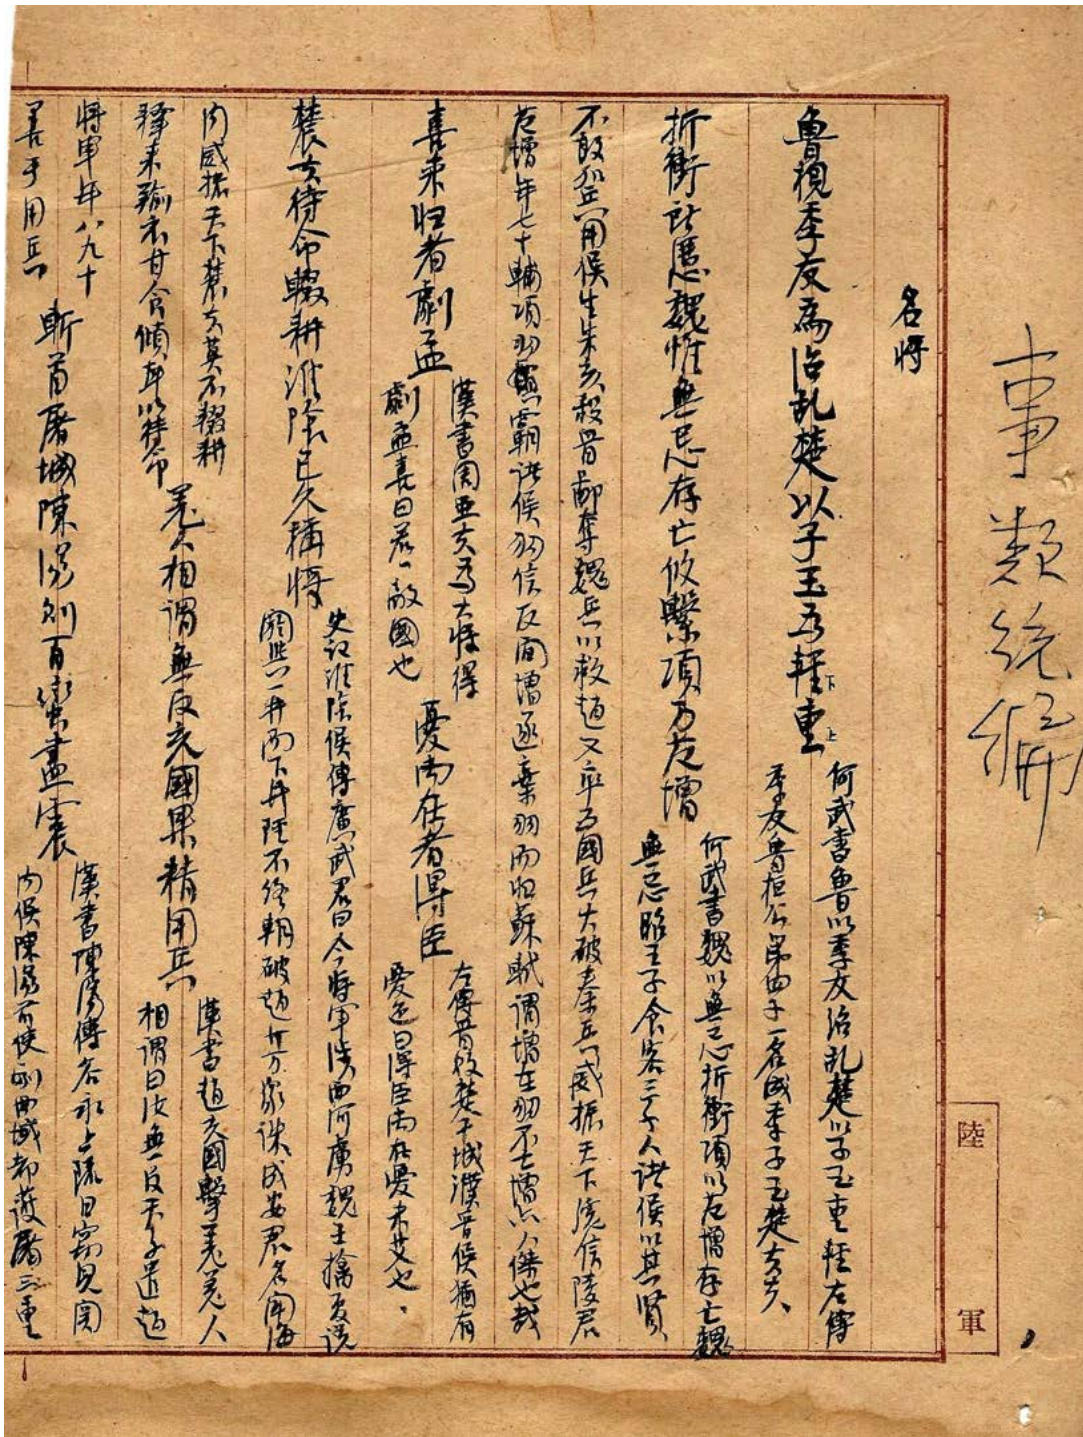 事類統編
名將
魯視季友為治乱楚以子玉為輕重
下
上
何武書魯以季友治乱楚以子玉重輕左傳
季友魯桓公第四子一名成季子玉楚大夫
折衝所憑魏惟無忌存亡攸繫項乃范增
何武書魏以無忌折衝項以范增存亡魏
無忌昭王子食客三千人諸侯以其賢
不敢加兵用侯生朱亥殺晋鄙奪魏兵以救趙又率五國兵大破秦兵威振天下号信陵君
范增年七十輔項羽霸諸侯羽信反间增遂棄羽而归蘇軾谓增在羽不亡增亦人傑也哉
喜来归者劇孟
漢書周亚夫為大將得
劇孟喜曰若一敵國也
憂尚在者得臣
左傳晋败楚于城濮晋侯猶有
憂色曰得臣尚在憂未艾也
農夫待命輟耕淮陰已久稱將
史記淮陰侯傳廣武君曰今將軍涉西河虜魏王擒夏说
阏與一舉而下井陘不终朝破趙廿万眾诛成安君名闻海
内威振天下農夫莫不輟耕
釋耒褕衣甘食傾耳以待命
羌人相谓無反充國果精用兵
漢書趙充國擊羌羌人
相谓曰汝無反天子遣趙
將軍年八九十
善于用兵
斬首屠城陳湯则百蛮盡震
漢書陳湯傳谷永上疏曰窃見関
内侯陳湯前使副西域都護屠三重
陸
軍